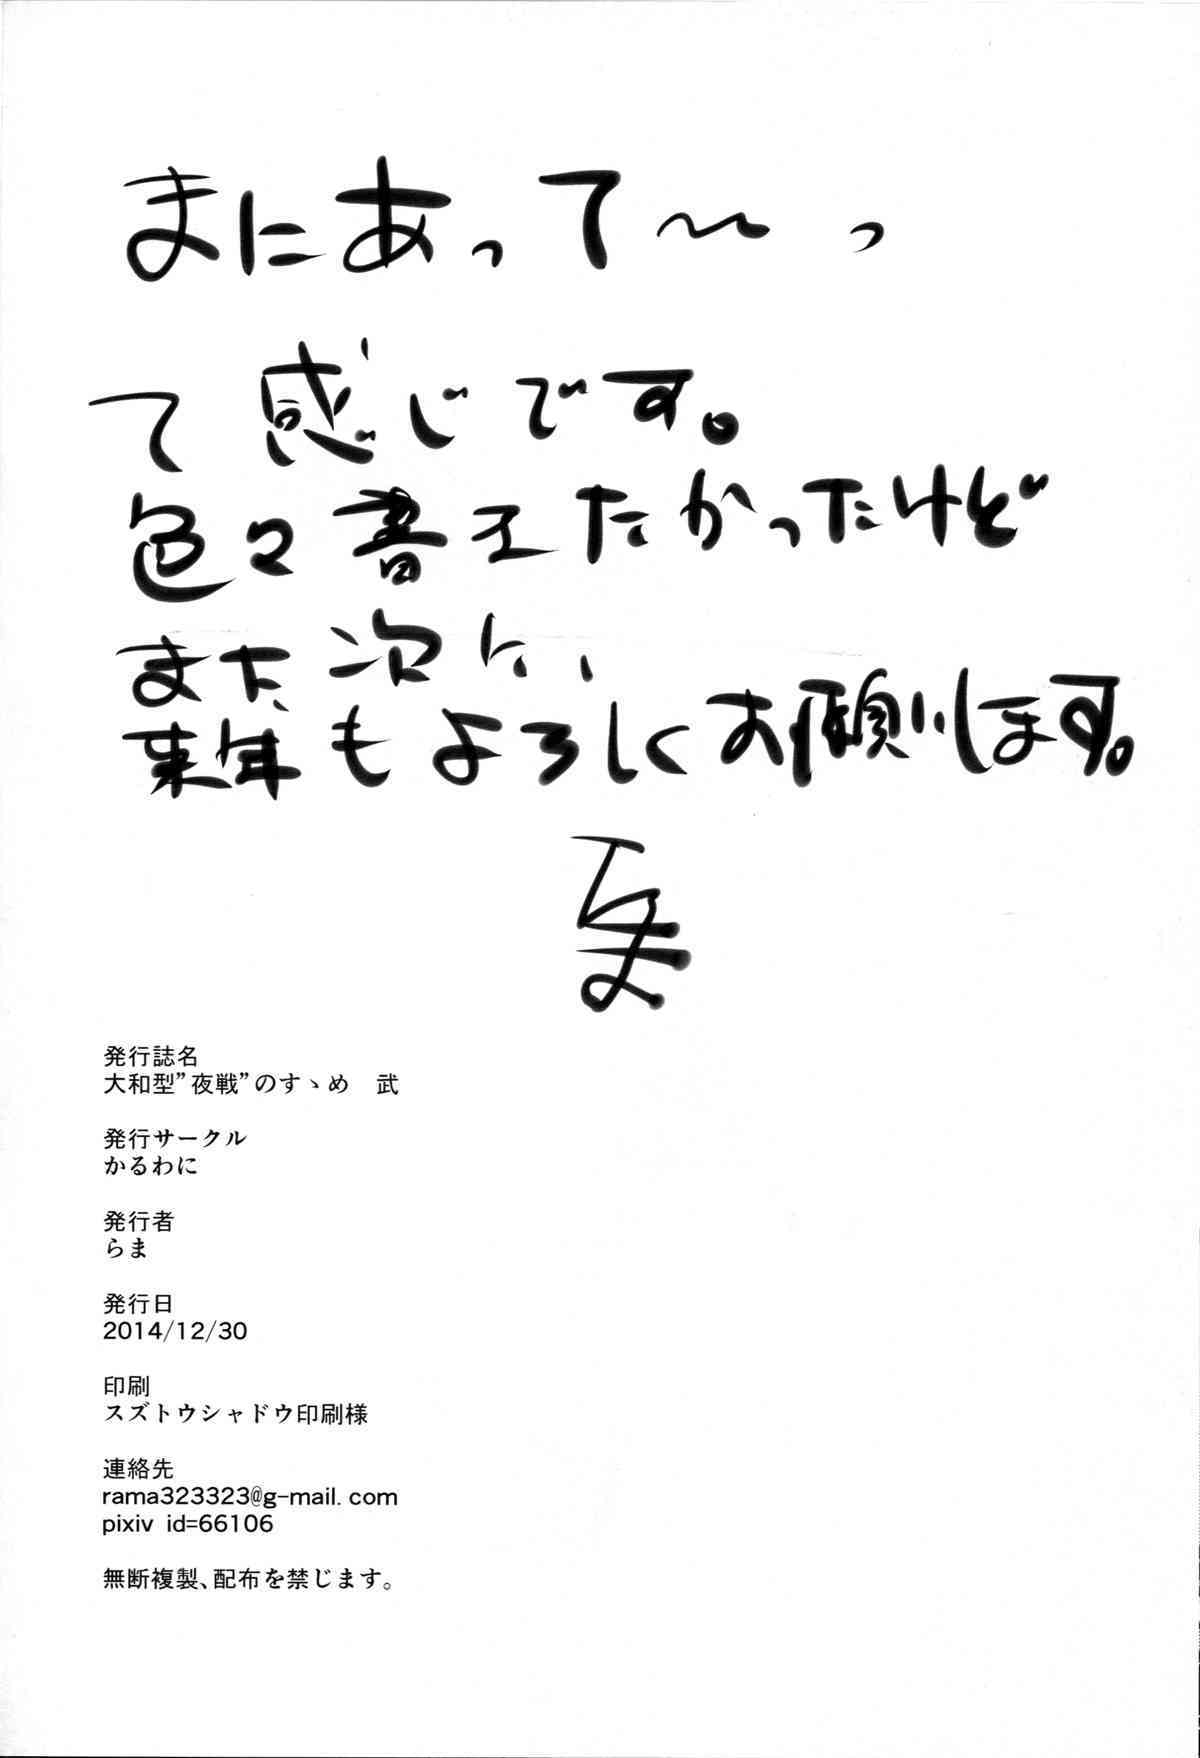 まにあって〜っ
て感じです。
色々書きたかったけど
また、次に、
来年もよろしくお願いします。
らま
発行誌名
大和型”夜戦”のすゝめ　武
発行サークル
かるわに
発行者
らま
発行日
2014/12/30
印刷
スズトウシャドウ印刷様
連絡先
rama323323@g-mail.com
pixiv id=66106
無断複製、配布を禁じます。